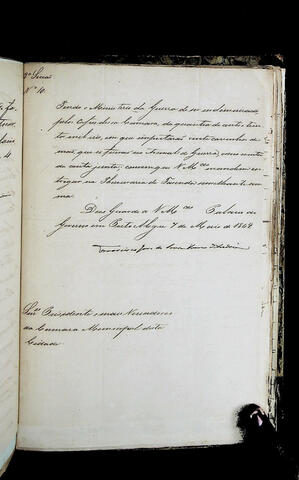 2ª Secção
Nº 10.
Tendo o Ministerio da Guerra de ser indemnisado,
pelo Cofre dessa Camara, da quantia de cento e trin
ta mil reis, em que importarão vinte carrinhos de
mão, que se fizerão no Arsenal de Guerra, como consta
da conta junta, convem que V. Mces mandem en-
tregar na Thesouraria de Fazenda semelhante som
ma.
Deus Guarde a V. Mces Palacio do
Governo em Porto Alegre 7 de Maio de 1862
Francisco
Snrs. Presidente e mais Vereadores
da Camara Municipal desta
Cidade